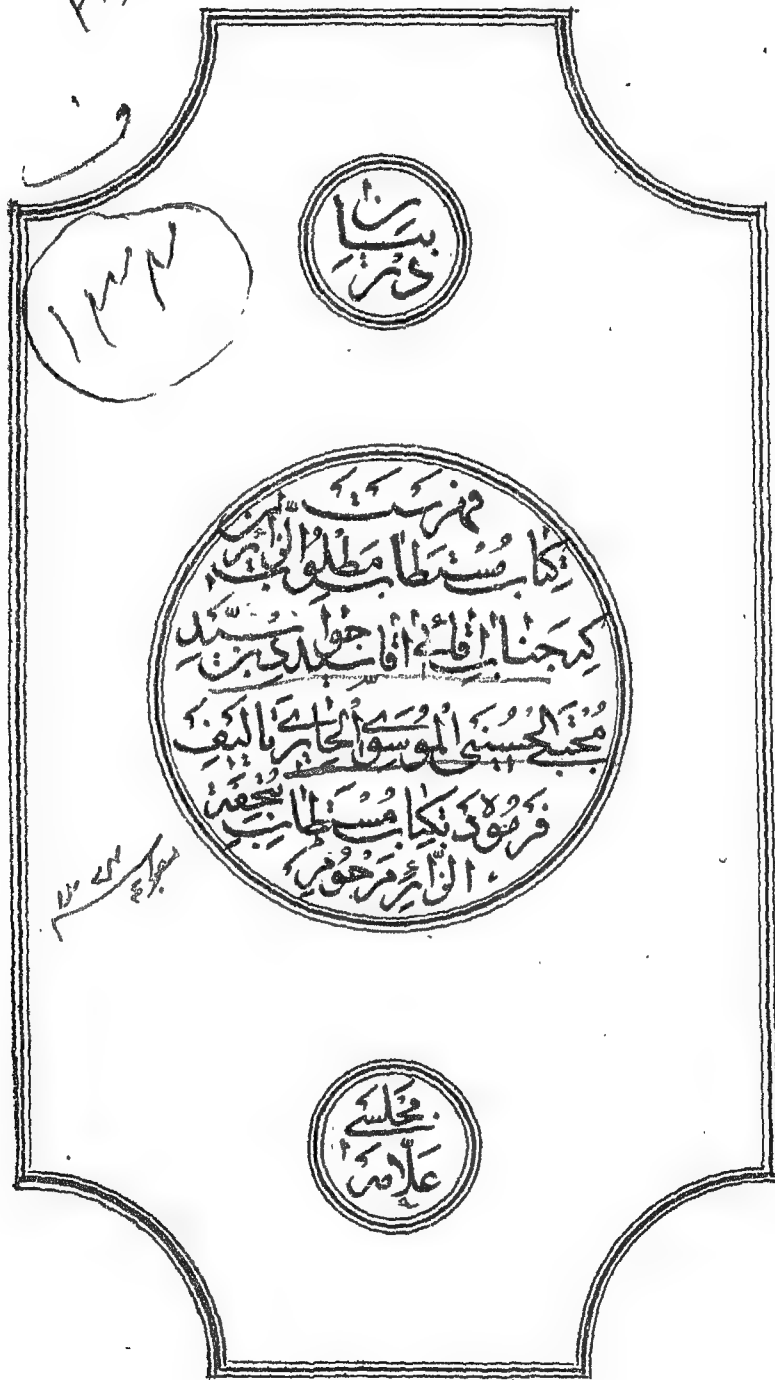 در بیان
فهرست این
کتاب مستطاب مطلوب الزائر
که جناب اقائی اقا سید جواد سید
مجتبی الحسینی الموسوی الحایری تالیف
فرموده بکتاب مستطاب تحفة
الزائر مرحوم
علامه
مجلسی
۱۳۴